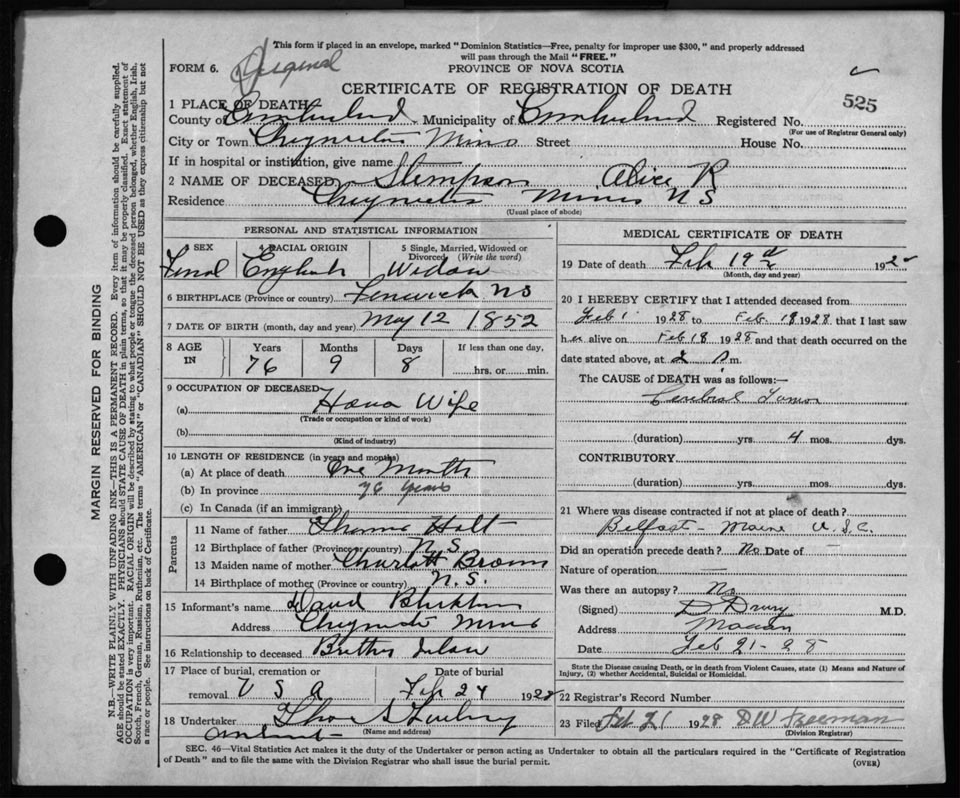 This form if placed in an envelope, marked "Dominion Statistics—Free, penalty for improper use $300," and properly addressed
will pass through the Mail "FREE."
FORM 6. Original
PROVINCE OF NOVA SCOTIA
CERTIFICATE OF REGISTRATION OF DEATH
525
1 PLACE OF DEATH
County of Cumberland Municipality of Cumberland Registered No.
(For use of Registrar General only)
City or Town Chignecto Mines Street House No.
If in hospital or institution, give name
2 NAME OF DECEASED Stempson Alice R
Residence Chignecto Mines N S
(Usual place of abode)
PERSONAL AND STATISTICAL INFORMATION
3 SEX 4 RACIAL ORIGIN 5 Single, Married, Widowed or
Divorced (Write the word)
Femal English Widow
6 BIRTHPLACE (Province or country) Fenwick NS
7 DATE OF BIRTH (month, day and year) May 12 1852
8 AGE IN Years Months Days If less than one day,
76 9 8 hrs. or min.
9 OCCUPATION OF DECEASED
(a) House Wife
(Trade or occupation or kind of work)
(b)
(Kind of industry)
10 LENGTH OF RESIDENCE (in years and months)
(a) At place of death One Month
(b) In province 76 years
(c) In Canada (if an immigrant)
Parents
11 Name of father Thomas Holt
12 Birthplace of father (Province or country) N.S.
13 Maiden name of mother Charlott Brown
14 Birthplace of mother (Province or country) N.S.
15 Informant's name David
Address Chignecto Mines
16 Relationship to deceased Brother in law
17 Place of burial, cremation or Date of burial
removal U S A Feb 24 1928
18 Undertaker
Amherst (Name and address)
MEDICAL CERTIFICATE OF DEATH
19 Date of death Feb 19th 192
(Month, day and year)
20 I HEREBY CERTIFY that I attended deceased from
Feb 1 1928 to Feb. 18 1928 that I last saw
her alive on Feb 18 1928 and that death occurred on the
date stated above, at 2 m.
The CAUSE of DEATH was as follows:—
Cerebral Tumor
(duration) yrs. 4 mos. dys.
CONTRIBUTORY
(duration) yrs. mos. dys.
21 Where was disease contracted if not at place of death?
Belfast - Maine U.S.A.
Did an operation precede death? No Date of —
Nature of operation —
Was there an autopsy? No
(Signed) D Drury M.D.
Address Maccan
Date Feb 21-28
State the Disease causing Death, or in death from Violent Causes, state (1) Means and Nature of
Injury, (2) whether Accidental, Suicidal or Homicidal.
22 Registrar's Record Number
23 Filed Feb 21 1928 D W Freeman
(Division Registrar)
SEC. 46—Vital Statistics Act makes it the duty of the Undertaker or person acting as Undertaker to obtain all the particulars required in the "Certificate of Registration
of Death" and to file the same with the Division Registrar who shall issue the burial permit. (OVER)
MARGIN RESERVED FOR BINDING
N.B.—WRITE PLAINLY WITH UNFADING INK—THIS IS A PERMANENT RECORD. Every item of information should be carefully supplied.
AGE should be stated EXACTLY. PHYSICIANS should STATE CAUSE OF DEATH in plain terms, so that it may be properly classified. Exact statement of
OCCUPATION is very important. RACIAL ORIGIN will be described by stating to what people or tongue the deceased person belonged, whether English, Irish,
Scotch, French, German, Russian, Ruthenian, etc. The terms "AMERICAN" or "CANADIAN" SHOULD NOT BE USED as they express citizenship but not
a race or people. See instructions on back of Certificate.